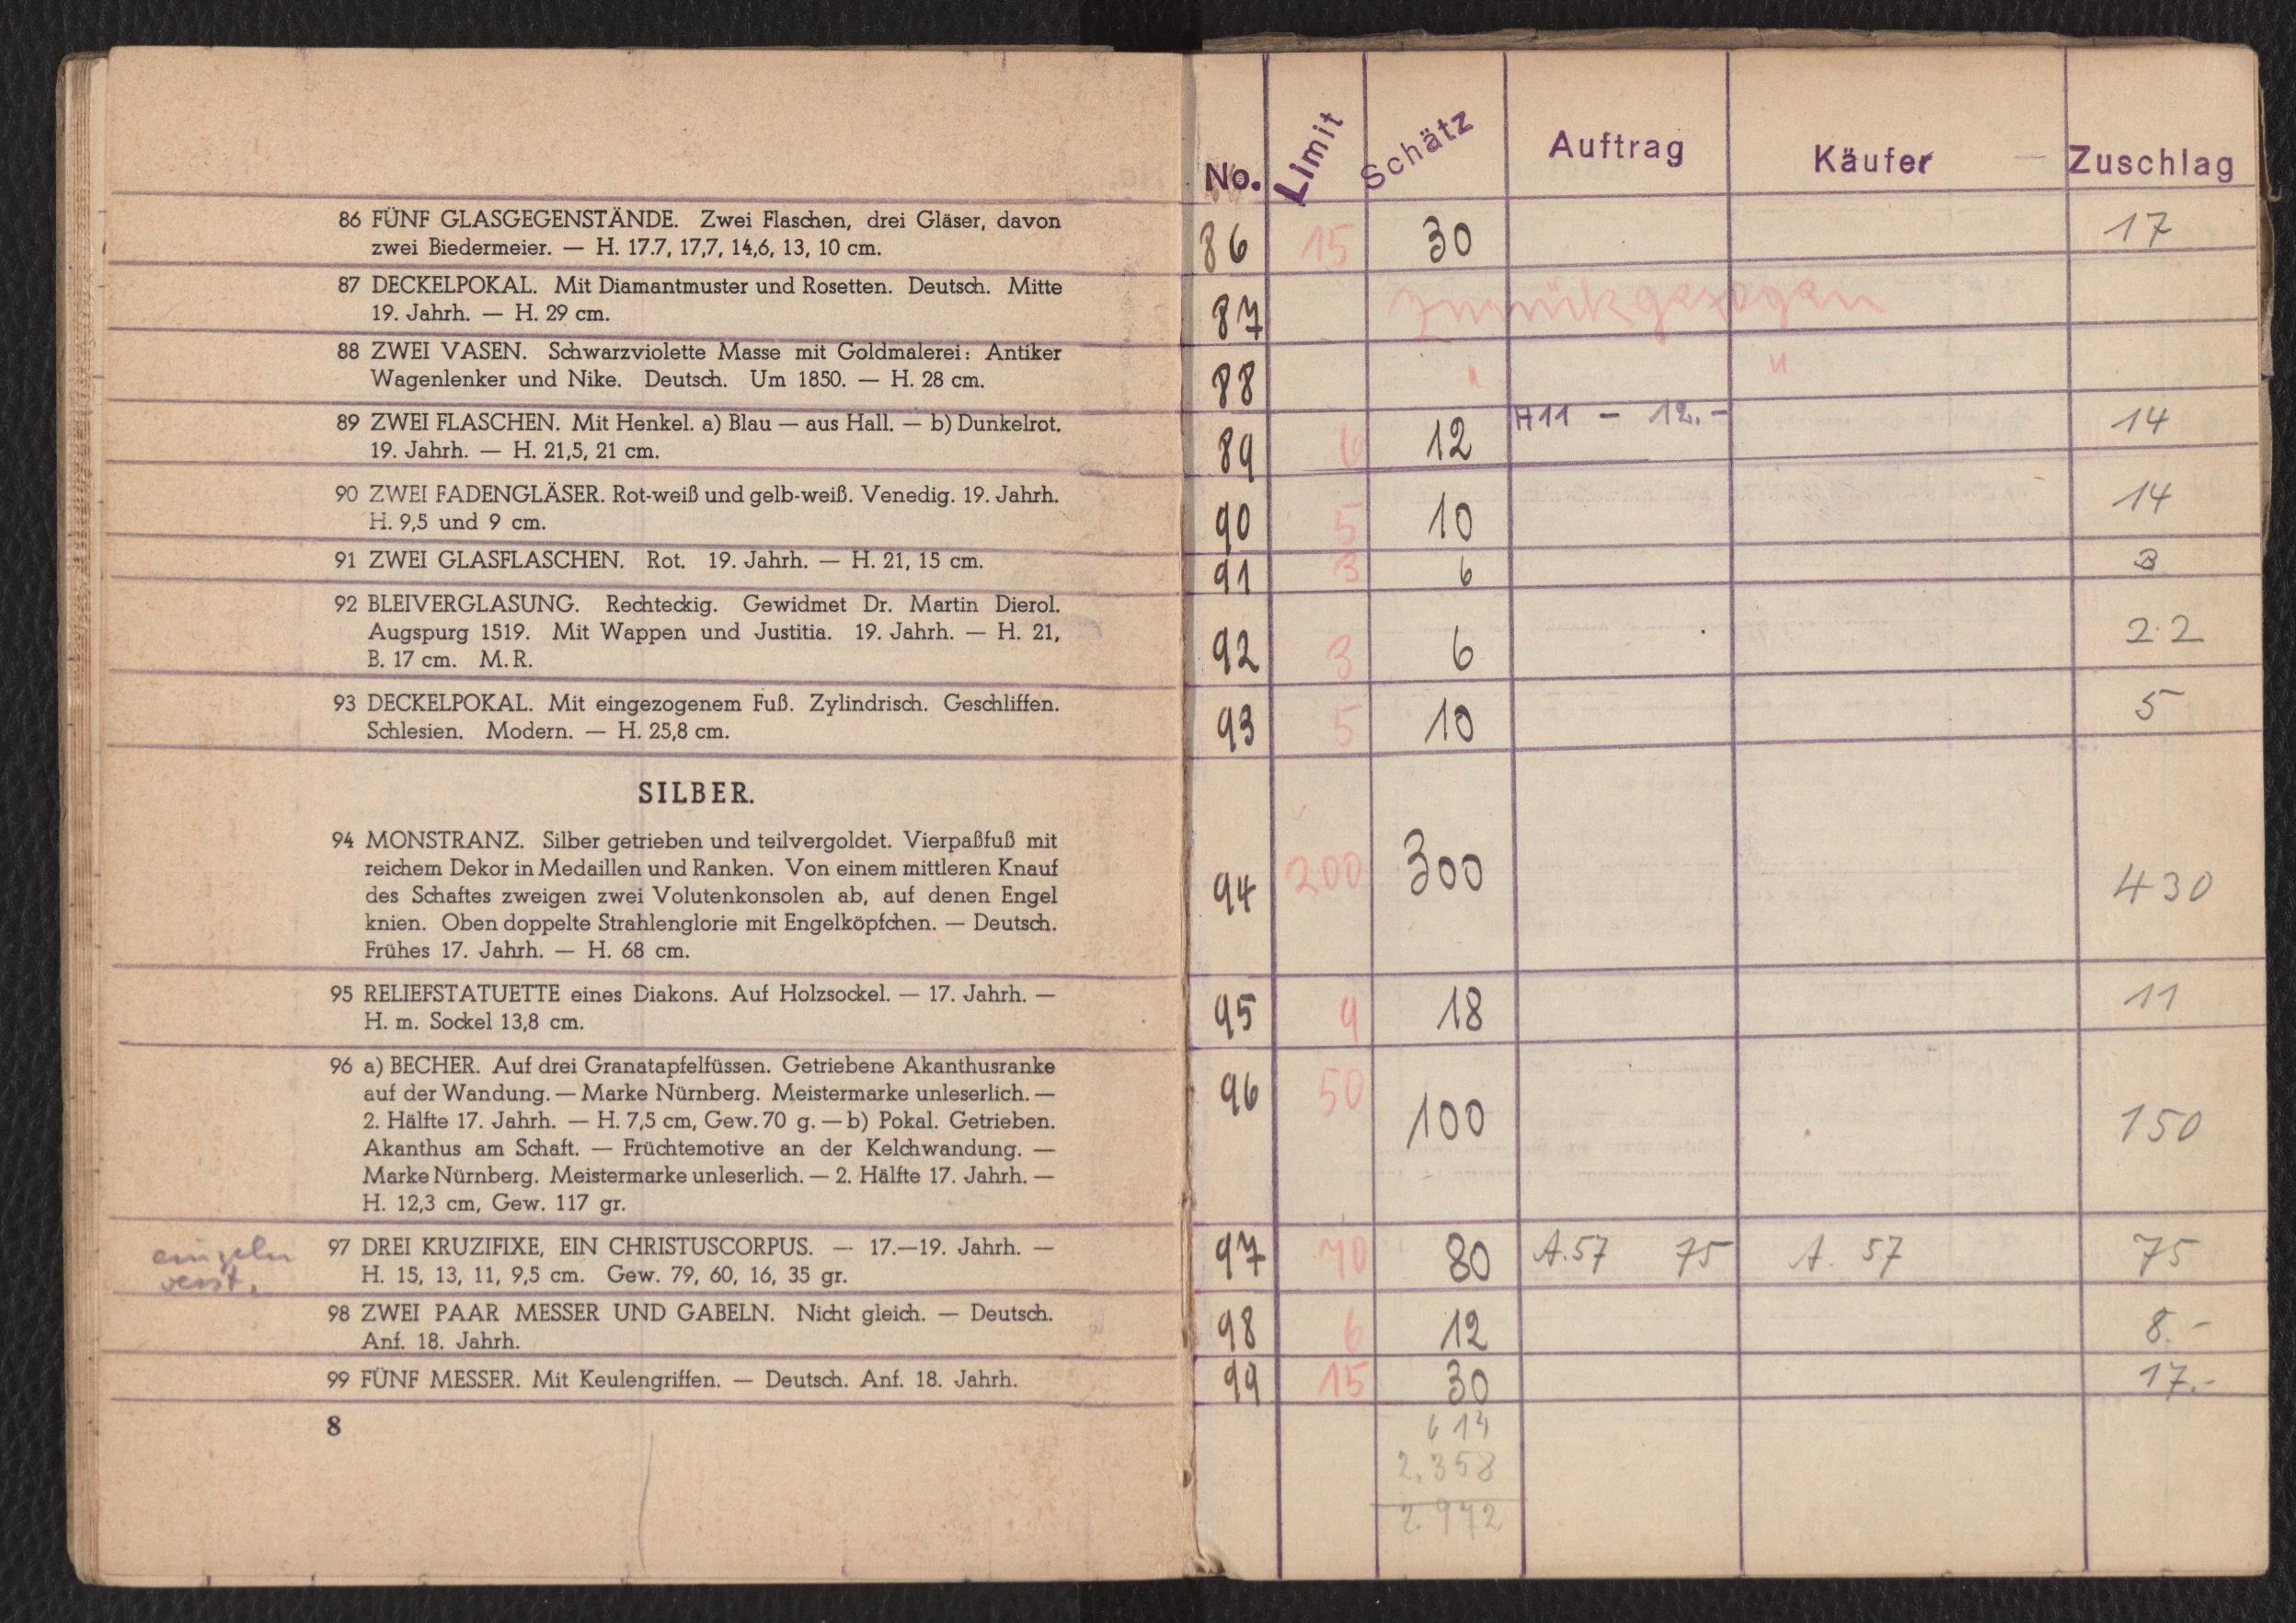 86 FÜNF GLASGEGENSTÄNDE. Zwei Flaschen, drei Gläser, davon
zwei Biedermeier. — H. 17.7, 17,7, 14,6, 13, 10 cm.
87 DECKELPOKAL. Mit Diamantmuster und Rosetten. Deutsch. Mitte
19. Jahrh. — H. 29 cm.
88 ZWEI VASEN. Schwarzviolette Masse mit Goldmalerei: Antiker
Wagenlenker und Nike. Deutsch. Um 1850. — H. 28 cm.
89 ZWEI FLASCHEN. Mit Henkel. a) Blau — aus Hall. — b) Dunkelrot.
19. Jahrh. — H. 21,5, 21 cm.
90 ZWEI FADENGLÄSER. Rot-weiß und gelb-weiß. Venedig. 19. Jahrh.
H. 9,5 und 9 cm.
91 ZWEI GLASFLASCHEN. Rot. 19. Jahrh. — H. 21, 15 cm.
92 BLEIVERGLASUNG. Rechteckig. Gewidmet Dr. Martin Dierol.
Augspurg 1519. Mit Wappen und Justitia. 19. Jahrh. — H. 21,
B. 17 cm. M. R.
93 DECKELPOKAL. Mit eingezogenem Fuß. Zylindrisch. Geschliffen.
Schlesien. Modern. — H. 25,8 cm.
SILBER.
94 MONSTRANZ. Silber getrieben und teilvergoldet. Vierpaßfuß mit
reichem Dekor in Medaillen und Ranken. Von einem mittleren Knauf
des Schaftes zweigen zwei Volutenkonsolen ab, auf denen Engel
knien. Oben doppelte Strahlenglorie mit Engelköpfchen. — Deutsch.
Frühes 17. Jahrh. — H. 68 cm.
95 RELIEFSTATUETTE eines Diakons. Auf Holzsockel. — 17. Jahrh. —
H. m. Sockel 13,8 cm.
96 a) BECHER. Auf drei Granatapfelfüssen. Getriebene Akanthusranke
auf der Wandung. — Marke Nürnberg. Meistermarke unleserlich. —
2. Hälfte 17. Jahrh. — H. 7,5 cm, Gew. 70 g. — b) Pokal. Getrieben.
Akanthus am Schaft. — Früchtemotive an der Kelchwandung. —
Marke Nürnberg. Meistermarke unleserlich. — 2. Hälfte 17. Jahrh. —
H. 12,3 cm, Gew. 117 gr.
einzeln
verst.
97 DREI KRUZIFIXE, EIN CHRISTUSCORPUS. — 17.—19. Jahrh. —
H. 15, 13, 11, 9,5 cm. Gew. 79, 60, 16, 35 gr.
98 ZWEI PAAR MESSER UND GABELN. Nicht gleich. — Deutsch.
Anf. 18. Jahrh.
99 FÜNF MESSER. Mit Keulengriffen. — Deutsch. Anf. 18. Jahrh.
8
No. Limit Schätz Auftrag Käufer Zuschlag
86 15 30 17
87 Zurückgezogen
88 " "
89 6 12 A11 - 12.- 14
90 5 10 14
91 3 6 3
92 3 6 22
93 5 10 5
94 200 300 430
95 9 18 11
96 50 100 150
97 70 80 A.57 75 A. 57 75
98 6 12 8.-
99 15 30 17.-
614
2.358
2.972